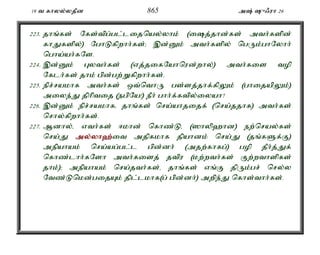 19 வ காலல்லதீன 865 அஷ் ஷுஃரா 26
223. தாங்கள் கேள்விப்பட்டதையெல்லாம் (ஷைத்தான்கள் அவர்களின்
காதுகளில்) போடுகிறார்கள்; இன்னும் அவர்களில் பெரும்பாலோர்
பொய்யர்களே.
224. இன்னும் புலவர்கள் (எத்தகையோரென்றால்) அவர்களை வழி
கேடர்கள் தாம் பின்பற்றுகிறார்கள்.
225. நிச்சயமாக அவர்கள் ஒவ்வொரு பள்ளத்தாக்கிலும் (பாதையிலும்)
அலைந்து திரிவதை (நபியே) நீர் பார்க்கவில்லையா?
226. இன்னும் நிச்சயமாக தாங்கள் செய்யாததைக் (செய்ததாக) அவர்கள்
சொல்கிறார்கள்.
227. ஆனால், எவர்கள் ஈமான் கொண்டு, (ஸாலிஹான) நற்செயல்கள்
செய்து அல்லாஹ்வை அதிகமாக தியானம் செய்து (தங்களுக்கு)
அநியாயம் செய்யப்பட்ட பின்னர் (அதற்காகப்) பழி தீர்த்துக்
கொண்டார்களோ அவர்களைத் தவிர (மற்றவர்கள் குற்றவாளிகள்
தாம்); அநியாயம் செய்தவர்கள், தாங்கள் எங்கு திரும்பச் செல்ல
வேண்டுமென்பதையும் திட்டமாக(ப் பின்னர்) அறிந்து கொள்வார்கள்.